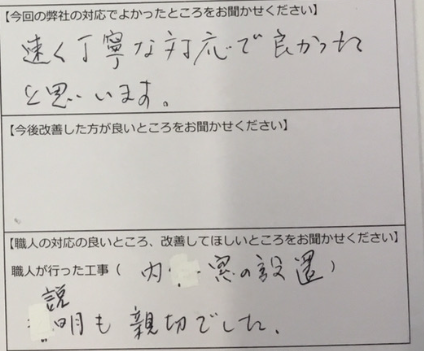 【今回の弊社の対応でよかったところをお聞かせください】
速く丁寧な対応で良かった
と思います。
【今後改善した方が良いところをお聞かせください】
【職人の対応の良いところ、改善してほしいところをお聞かせください】
職人が行った工事（ 内 窓の設置 ）
説
明も 親切でした。